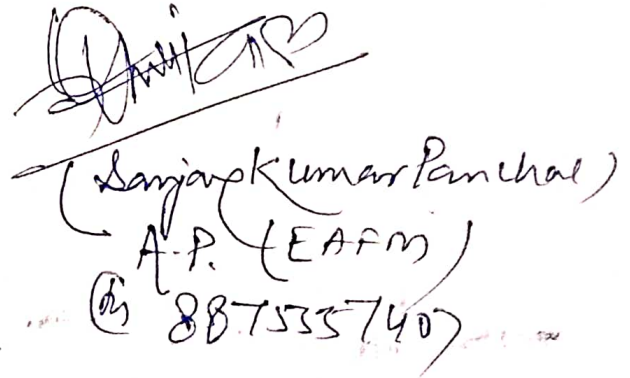 (Sanjay Kumar Panchal)
A.P. (EAFM)
8875357407